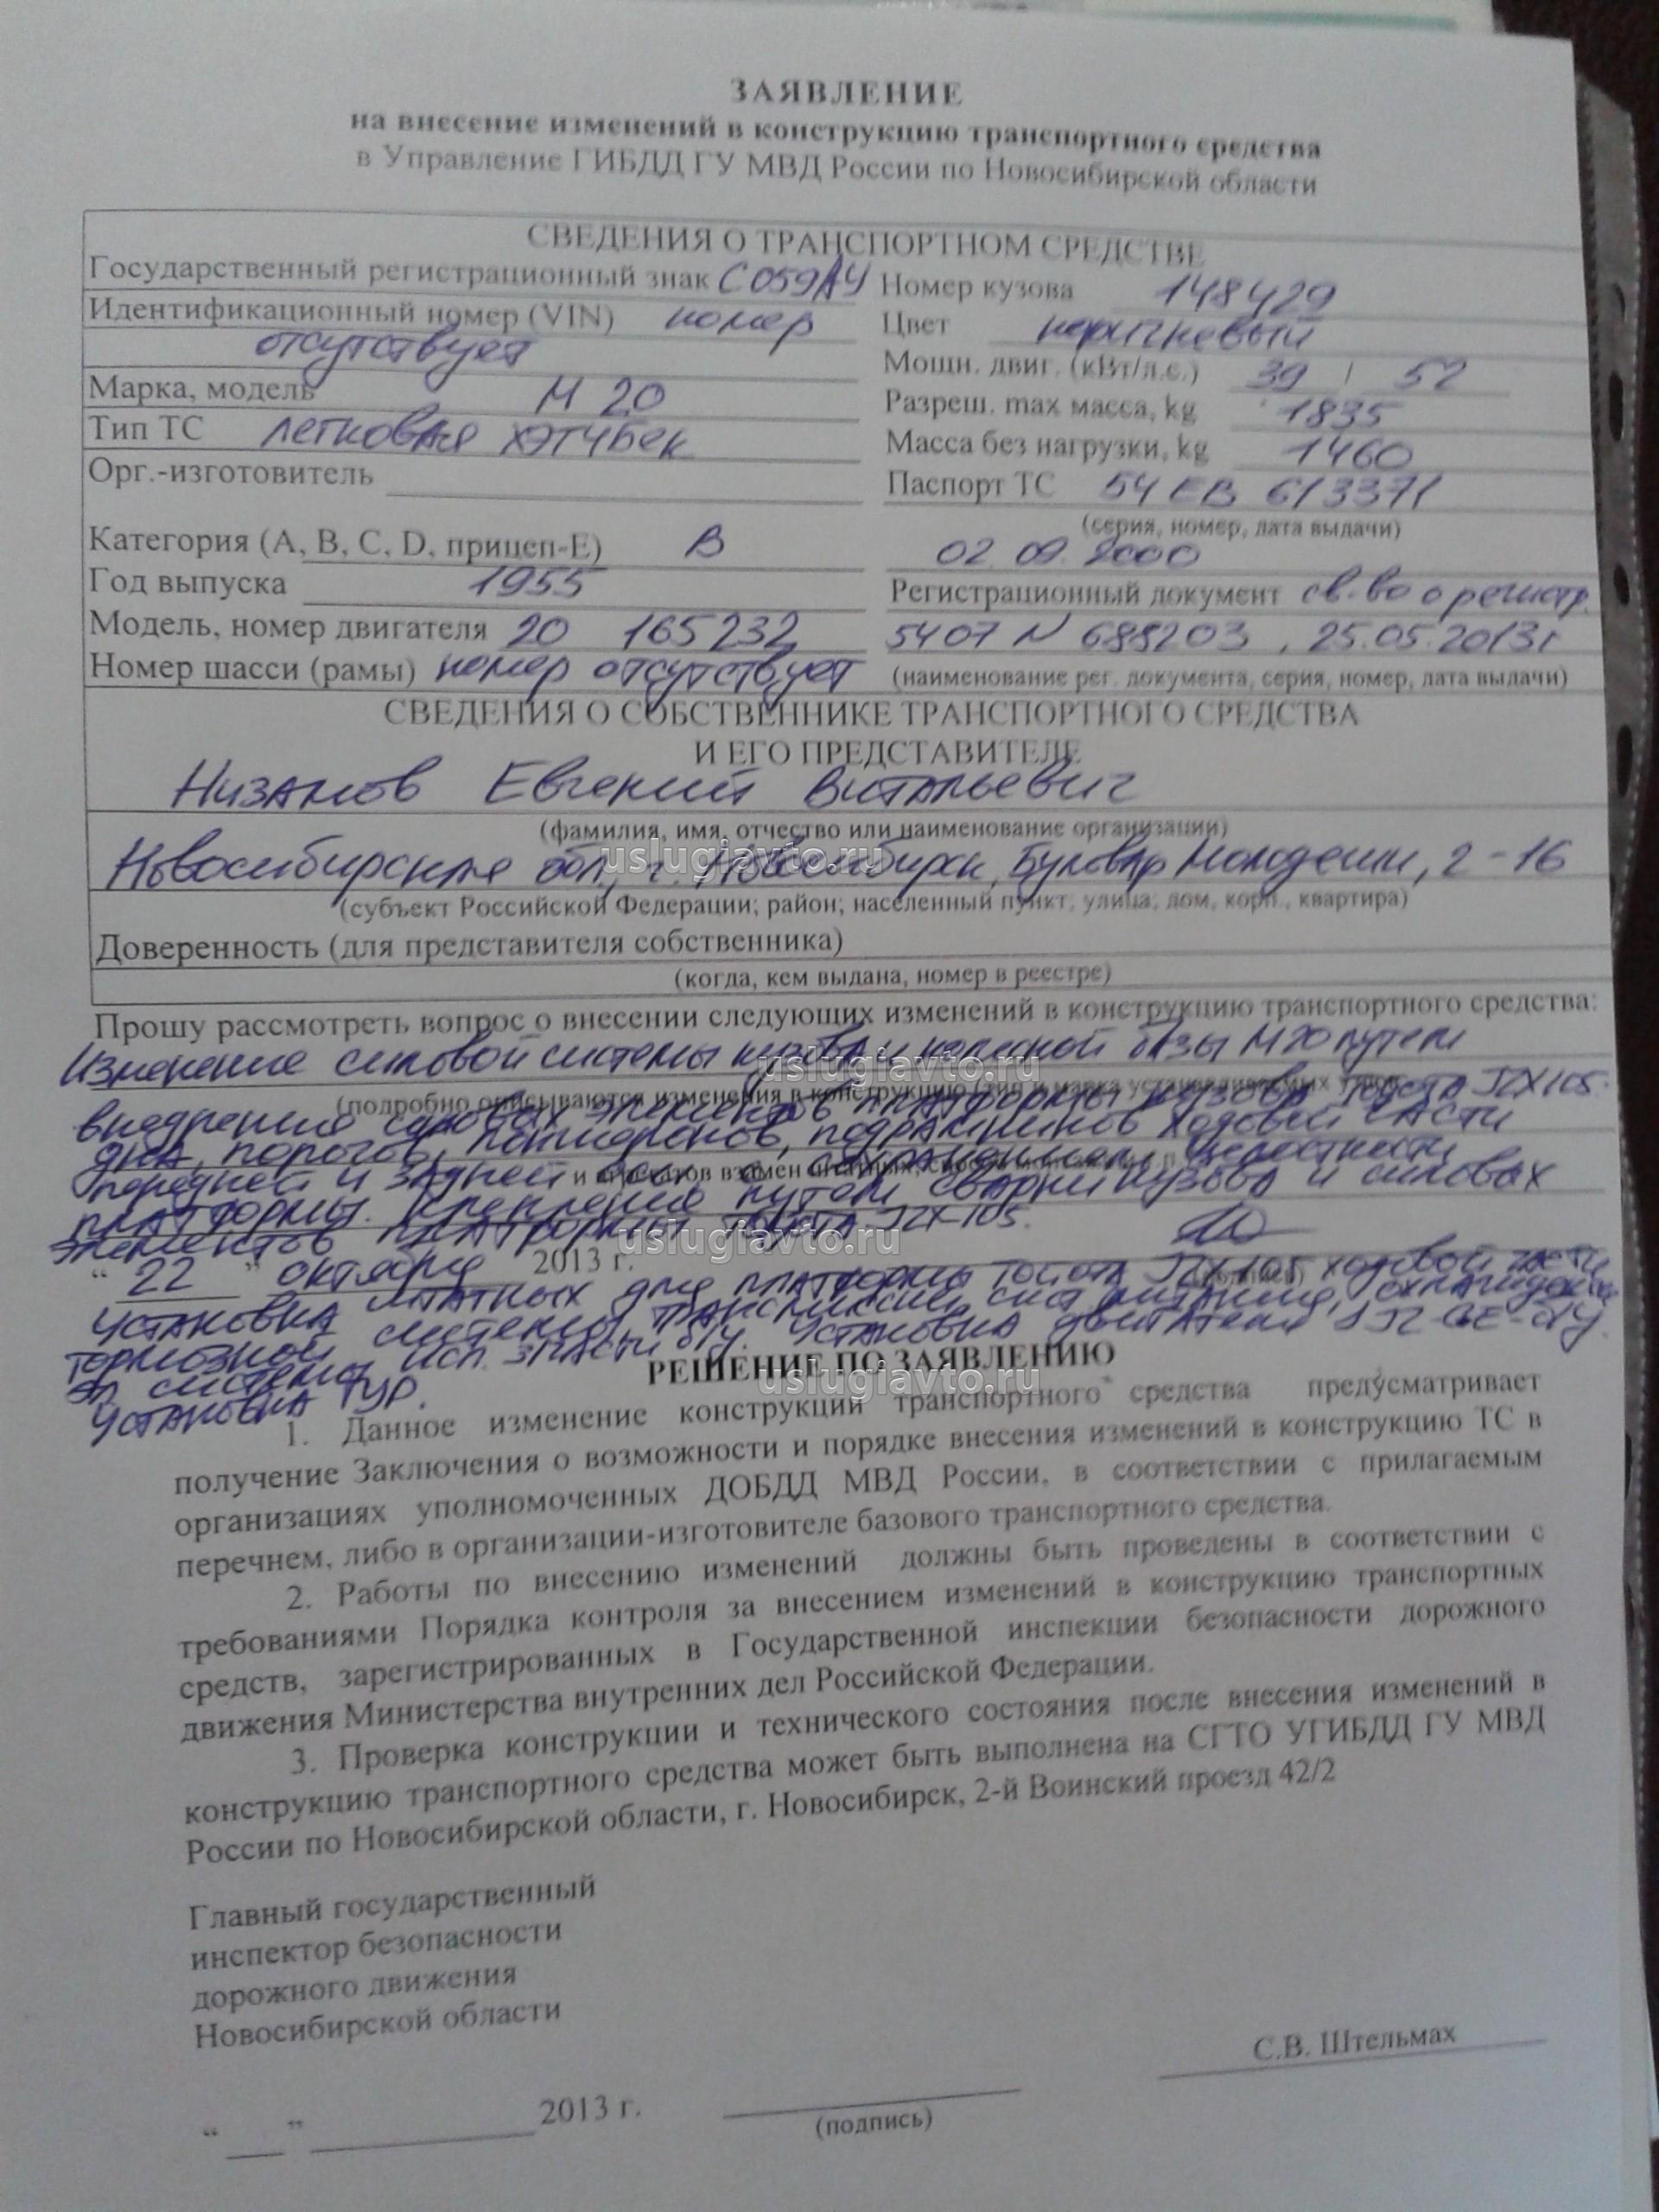 ЗАЯВЛЕНИЕ
на внесение изменений в конструкцию транспортного средства
в Управление ГИБДД ГУ МВД России по Новосибирской области
СВЕДЕНИЯ О ТРАНСПОРТНОМ СРЕДСТВЕ
Государственный регистрационный знак С059АУ
Идентификационный номер (VIN) номер
отсутствует
Марка, модель М 20
Тип ТС легковая хэтчбек
Орг.-изготовитель
Категория (А, В, С, D, прицеп-Е) В
Год выпуска 1955
Модель, номер двигателя 20 165232
Номер шасси (рамы) номер отсутствует
Номер кузова 148429
Цвет коричневый
Мощн. двиг. (кВт/л.с.) 39 / 52
Разреш. max масса, kg 1835
Масса без нагрузки, kg 1460
Паспорт ТС 54 ЕВ 613371
(серия, номер, дата выдачи)
02.09.2000
Регистрационный документ св-во о регистр.
5407 N 688203, 25.05.2013г
(наименование рег. документа, серия, номер, дата выдачи)
СВЕДЕНИЯ О СОБСТВЕННИКЕ ТРАНСПОРТНОГО СРЕДСТВА
И ЕГО ПРЕДСТАВИТЕЛЕ
Низамов Евгений Витальевич
(фамилия, имя, отчество или наименование организации)
uslugiavto.ru
Новосибирская обл., г. Новосибирск, Бульвар Молодежи, 2-16
(субъект Российской Федерации; район; населенный пункт, улица, дом, корп., квартира)
Доверенность (для представителя собственника)
(когда, кем выдана, номер в реестре)
Прошу рассмотреть вопрос о внесении следующих изменений в конструкцию транспортного средства:
Изменение силовой системы кузова и колесной базы М20 путем
uslugiavto.ru
(подробно описываются изменения в конструкцию (тип и марка устанавливаемых
внедрения силовых элементов платформы кузова тойота JZX105.
дна, порогов, лонжеронов, подрамников ходовой части
передней и задней части с сохранением целостности
и агрегатов взамен штатных, способ
платформы. Крепление путем сварки кузова и силовых
элементов платформы тойота JZX-105.
uslugiavto.ru
" 22 " октября 2013 г.
(подпись)
Установка штатных для платформы тойота JZX105 ходовой части
тормозной системы, трансмиссии, сист питания, охлаждения
эл системы исп. запчасти б/у. Установка двигателя 1JZ-GE-б/у.
Установка ГУР.
РЕШЕНИЕ ПО ЗАЯВЛЕНИЮ
uslugiavto.ru
1. Данное изменение конструкции транспортного средства предусматривает
получение Заключения о возможности и порядке внесения изменений в конструкцию ТС в
организациях уполномоченных ДОБДД МВД России, в соответствии с прилагаемым
перечнем, либо в организации-изготовителе базового транспортного средства.
2. Работы по внесению изменений должны быть проведены в соответствии с
требованиями Порядка контроля за внесением изменений в конструкцию транспортных
средств, зарегистрированных в Государственной инспекции безопасности дорожного
движения Министерства внутренних дел Российской Федерации.
3. Проверка конструкции и технического состояния после внесения изменений в
конструкцию транспортного средства может быть выполнена на СГТО УГИБДД ГУ МВД
России по Новосибирской области, г. Новосибирск, 2-й Воинский проезд 42/2
Главный государственный
инспектор безопасности
дорожного движения
Новосибирской области
С.В. Штельмах
"___" ____________ 2013 г.
(подпись)